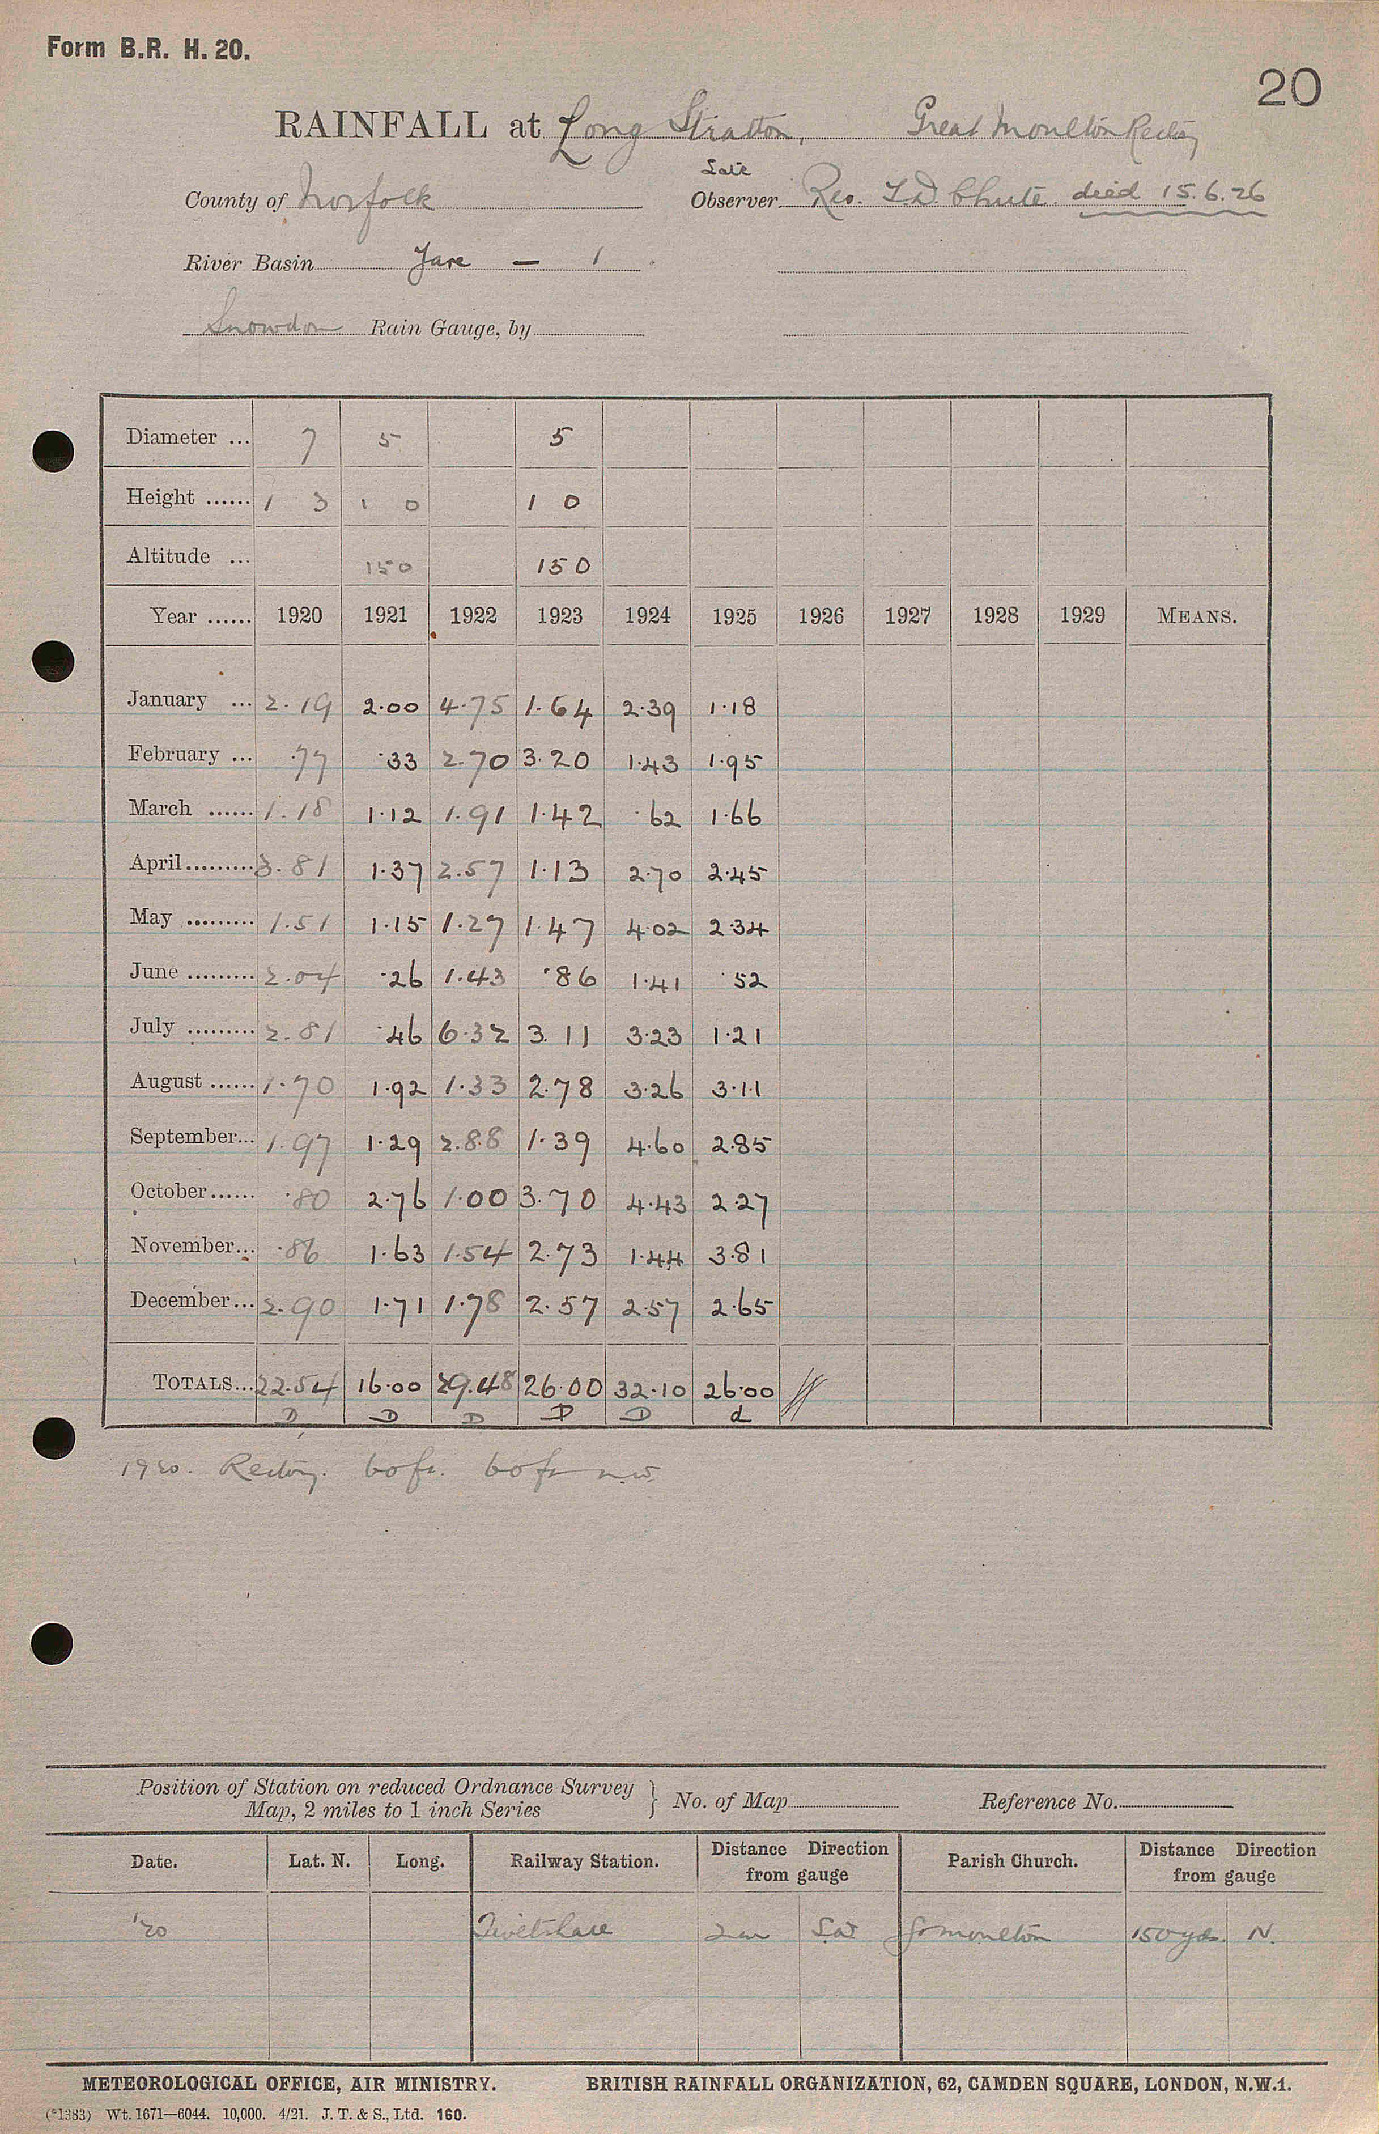 Form B.R. H. 20.
20
RAINFALL at Long Stratton, Great Moulton Rectory
Late
County of Norfolk Observer Rev. T.D. Chute died 15.6.26
River Basin Yare — 1
Snowdon Rain Gauge, by
Diameter ... 7 5 5
Height ...... 1 3 1 0 1 0
Altitude ... 150 150
Year ...... 1920 1921 1922 1923 1924 1925 1926 1927 1928 1929 MEANS.
January ... 2.19 2.00 4.75 1.64 2.39 1.18
February ... .77 .33 2.70 3.20 1.43 1.95
March ...... 1.18 1.12 1.91 1.42 .62 1.66
April ......... 3.81 1.37 2.57 1.13 2.70 2.45
May ......... 1.51 1.15 1.27 1.47 4.02 2.34
June ......... 2.04 .26 1.43 .86 1.41 .52
July ......... 2.81 .46 6.32 3.11 3.23 1.21
August ...... 1.70 1.92 1.33 2.78 3.26 3.11
September... 1.97 1.29 2.88 1.39 4.60 2.85
October ...... .80 2.76 1.00 3.70 4.43 2.27
November... .86 1.63 1.54 2.73 1.44 3.81
December ... 2.90 1.71 1.78 2.57 2.57 2.65
TOTALS... 22.54 16.00 29.48 26.00 32.10 26.00
D D D D D d
1920. Rectory. 60 ft. 60 ft N.W.
Position of Station on reduced Ordnance Survey
Map, 2 miles to 1 inch Series } No. of Map Reference No.
Date. Lat. N. Long. Railway Station. Distance Direction from gauge Parish Church. Distance Direction from gauge
'20 Tivetshall 2m S.W. Gt Moulton 150 yds. N.
METEOROLOGICAL OFFICE, AIR MINISTRY. BRITISH RAINFALL ORGANIZATION, 62, CAMDEN SQUARE, LONDON, N.W.1.
(*1383) Wt. 1671—6044. 10,000. 4/21. J. T. & S., Ltd. 160.